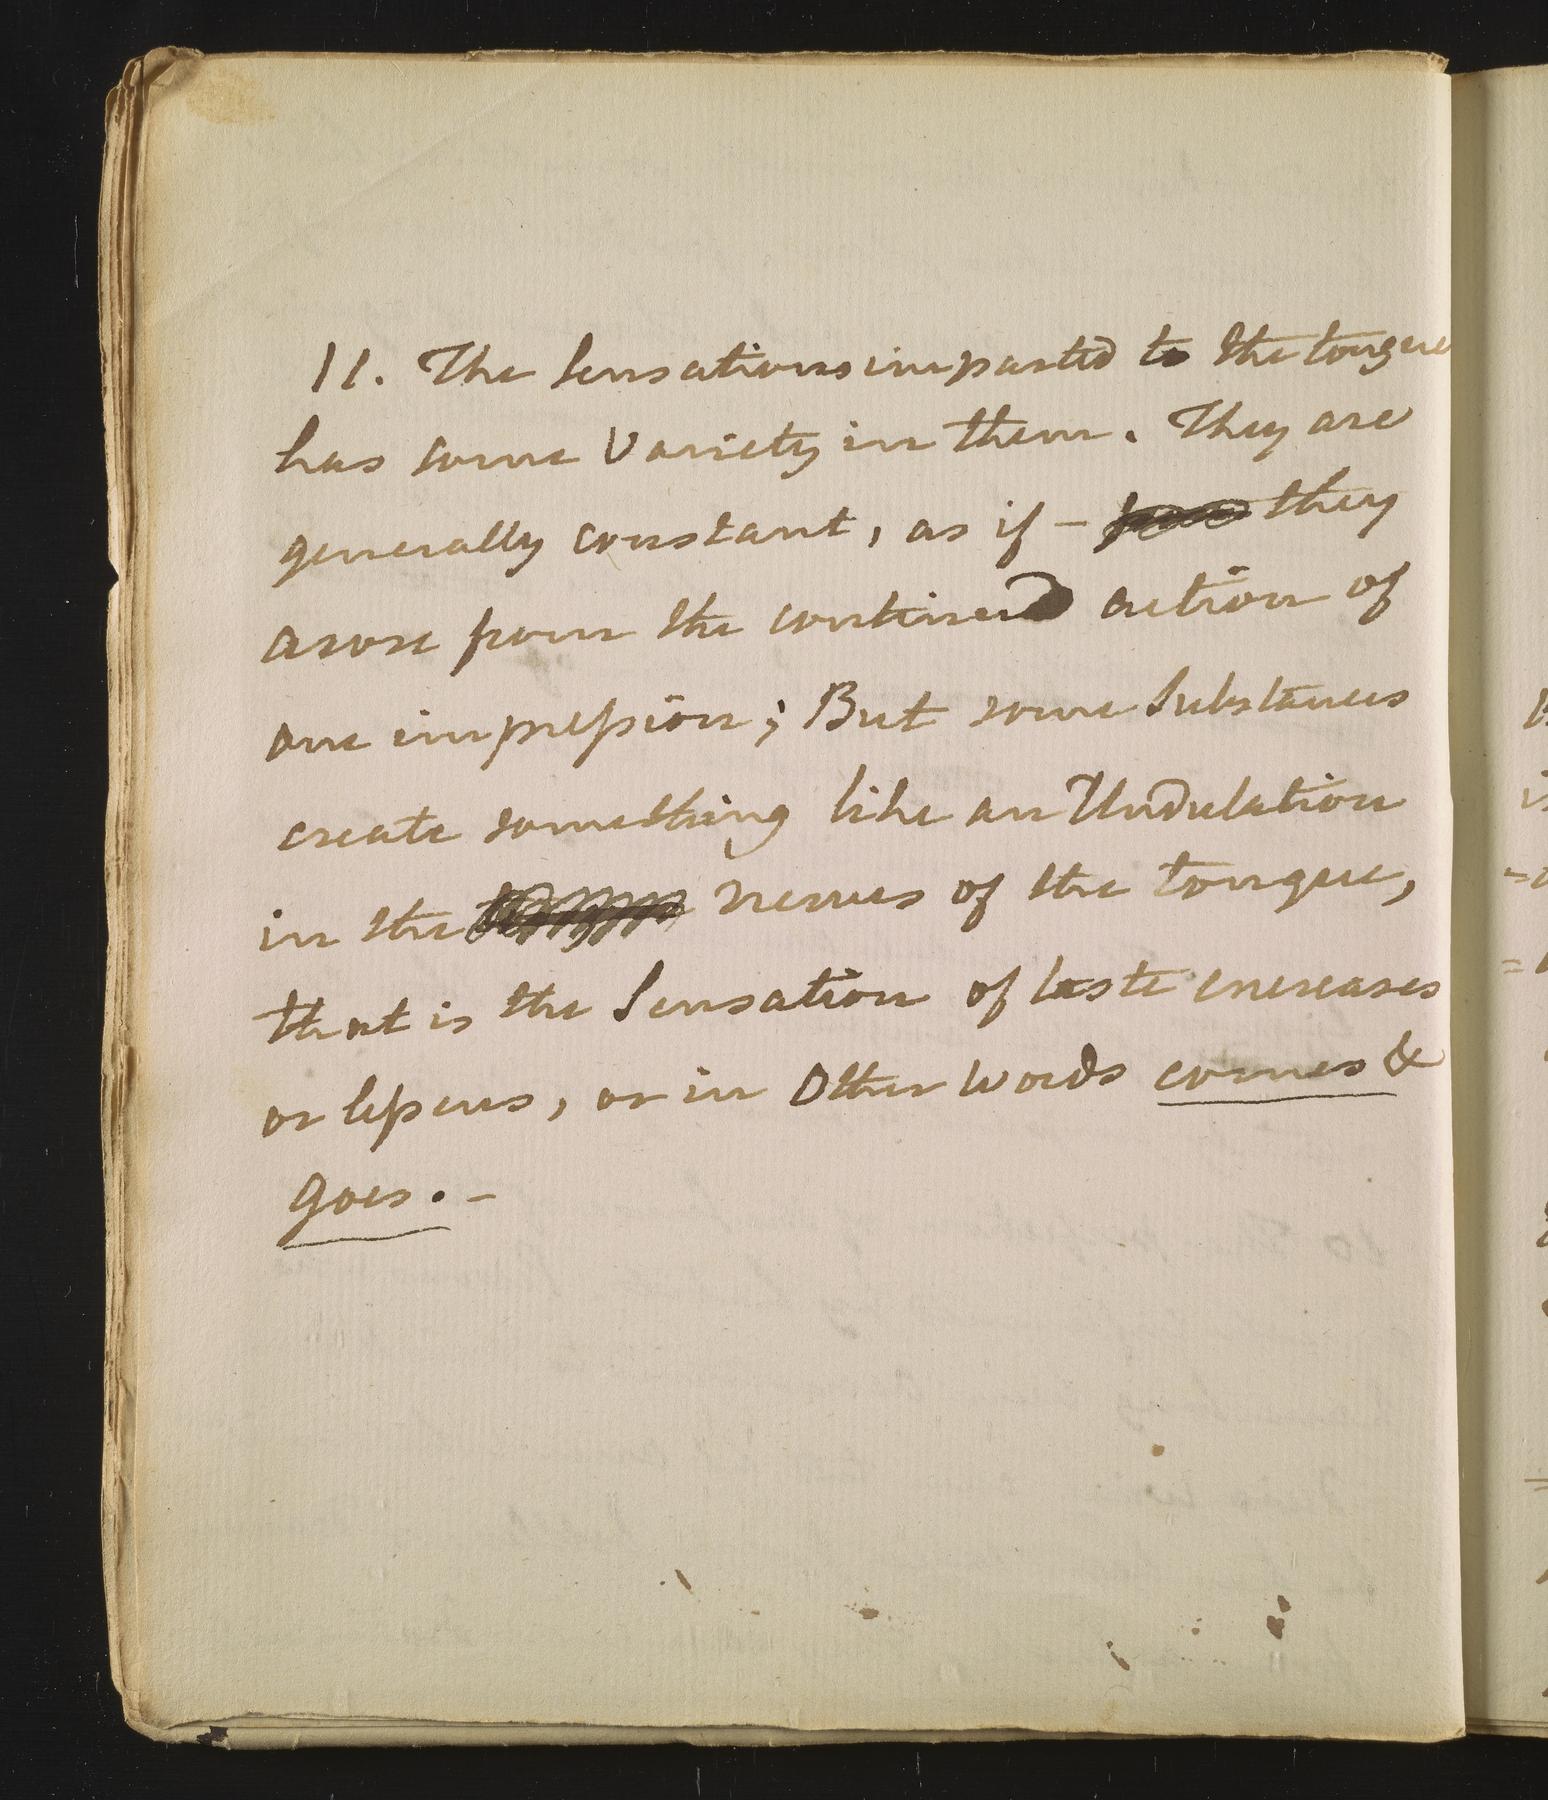 11. The Sensations imparted to the tongue
has some Variety in them. They are
generally constant, as if - they
arose from the continued action of
one impression; But some Substances
create something like an Undulation
in the nerves of the tongue,
that is the Sensation of taste encreases
or lessens, or in Other words comes &
goes. -